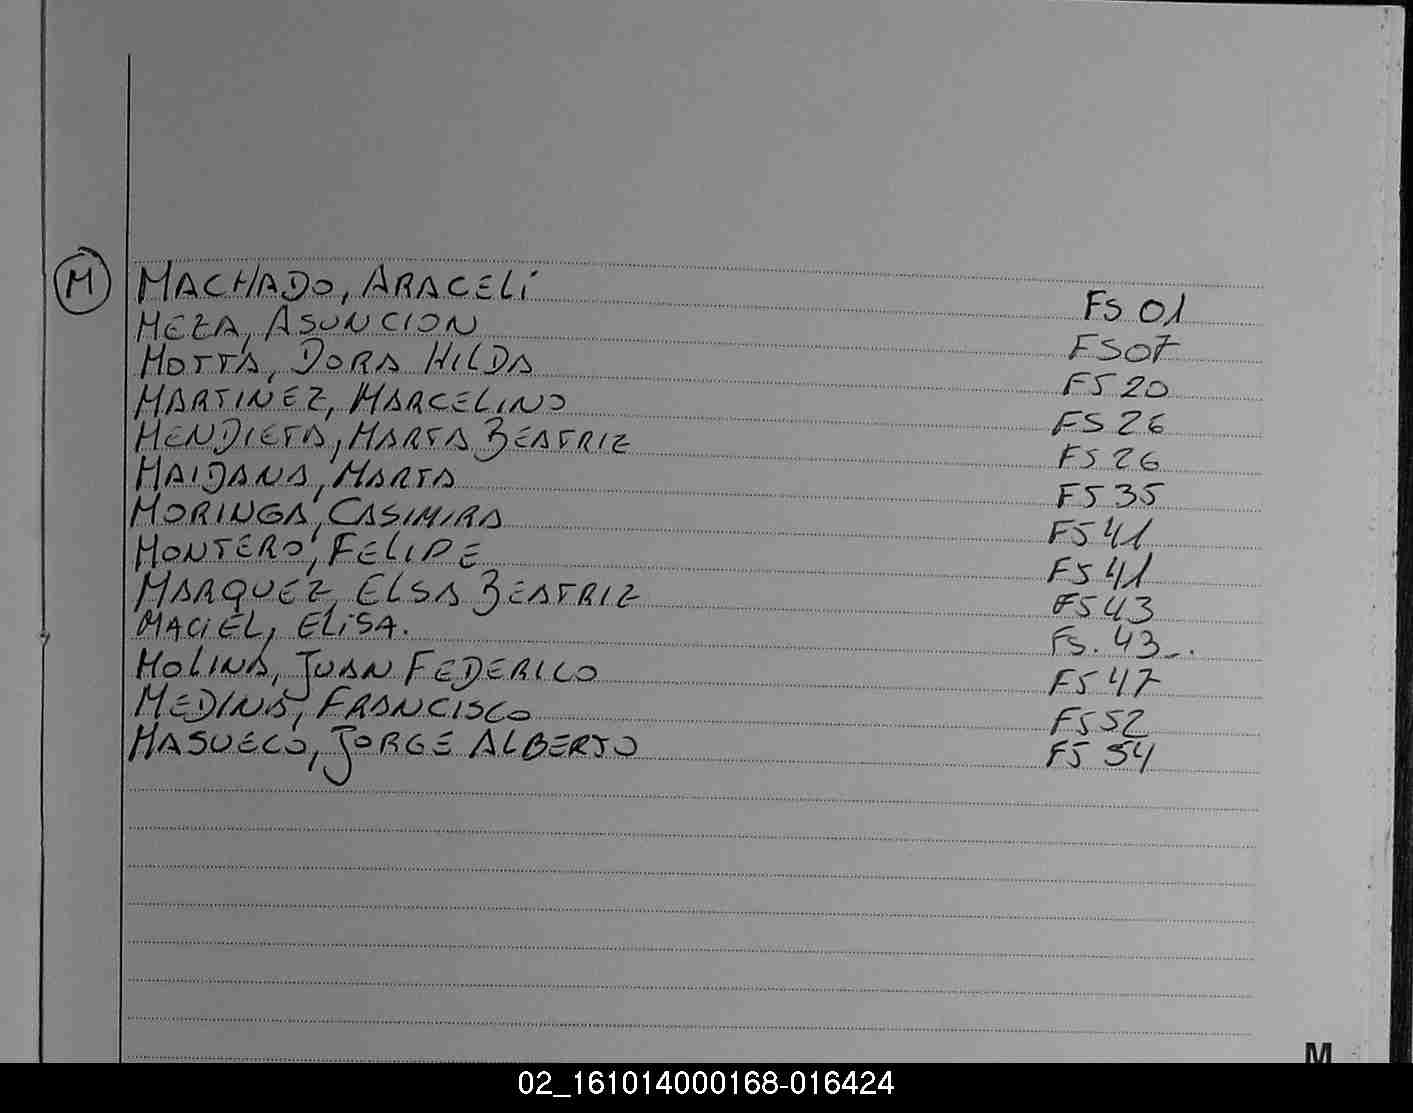 M MACHADO, ARACELI FS 01
MEZA, ASUNCION FS07
MOTTA, DORA HILDA FS 20
MARTINEZ, MARCELINO FS 26
MENDIETA, MARTA BEATRIZ FS 26
MAIDANA, MARTA FS 35
MORINGA, CASIMIRA FS 41
MONTERO, FELIPE FS 41
MARQUEZ, ELSA BEATRIZ FS 43
MACIEL, ELISA. FS. 43_.
MOLINA, JUAN FEDERICO FS 47
MEDINA, FRANCISCO FS 52
MASUECO, JORGE ALBERTO FS 54
M
02_161014000168-016424